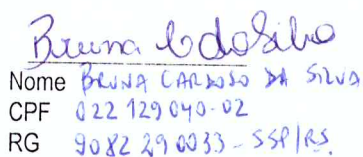 Bruna C da Silva
Nome BRUNA CARDOSO DA SILVA
CPF 022 129 040-02
RG 9082 29 0033 - SSP/RS.